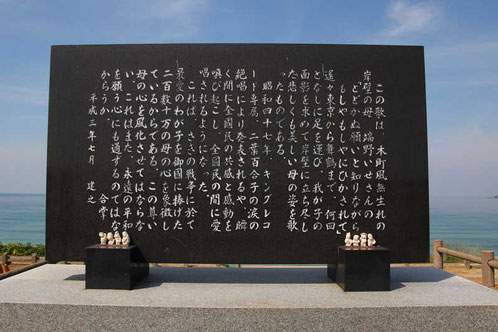 この歌は、本町風無生れの
岸壁の母、端野いせさんの
とどかぬ願いと知りながら
もしやもしやにひかされて
遙々東京から舞鶴まで、何回
となしに足を運び、我が子の
面影を求めて岸壁に立ち尽し
た悲しくも美しい母の姿を歌
ったものである。
昭和四十七年、キングレコ
ード専属、二葉百合子の涙の
絶唱により発表されるや、瞬
く間に全国民の共感と感動を
喚び起こし、全国民の間に愛
唱されるようになった。
これは、さきの戦争に於て
最愛のわが子を御國に捧げた
二百数十万の母の心を象徴し
ているからである。この尊い
母の心を風化させてはならな
い。これはまた、永遠の平和
を願う心にも通ずるのではな
かろうか。 合掌
平成二年七月 建之